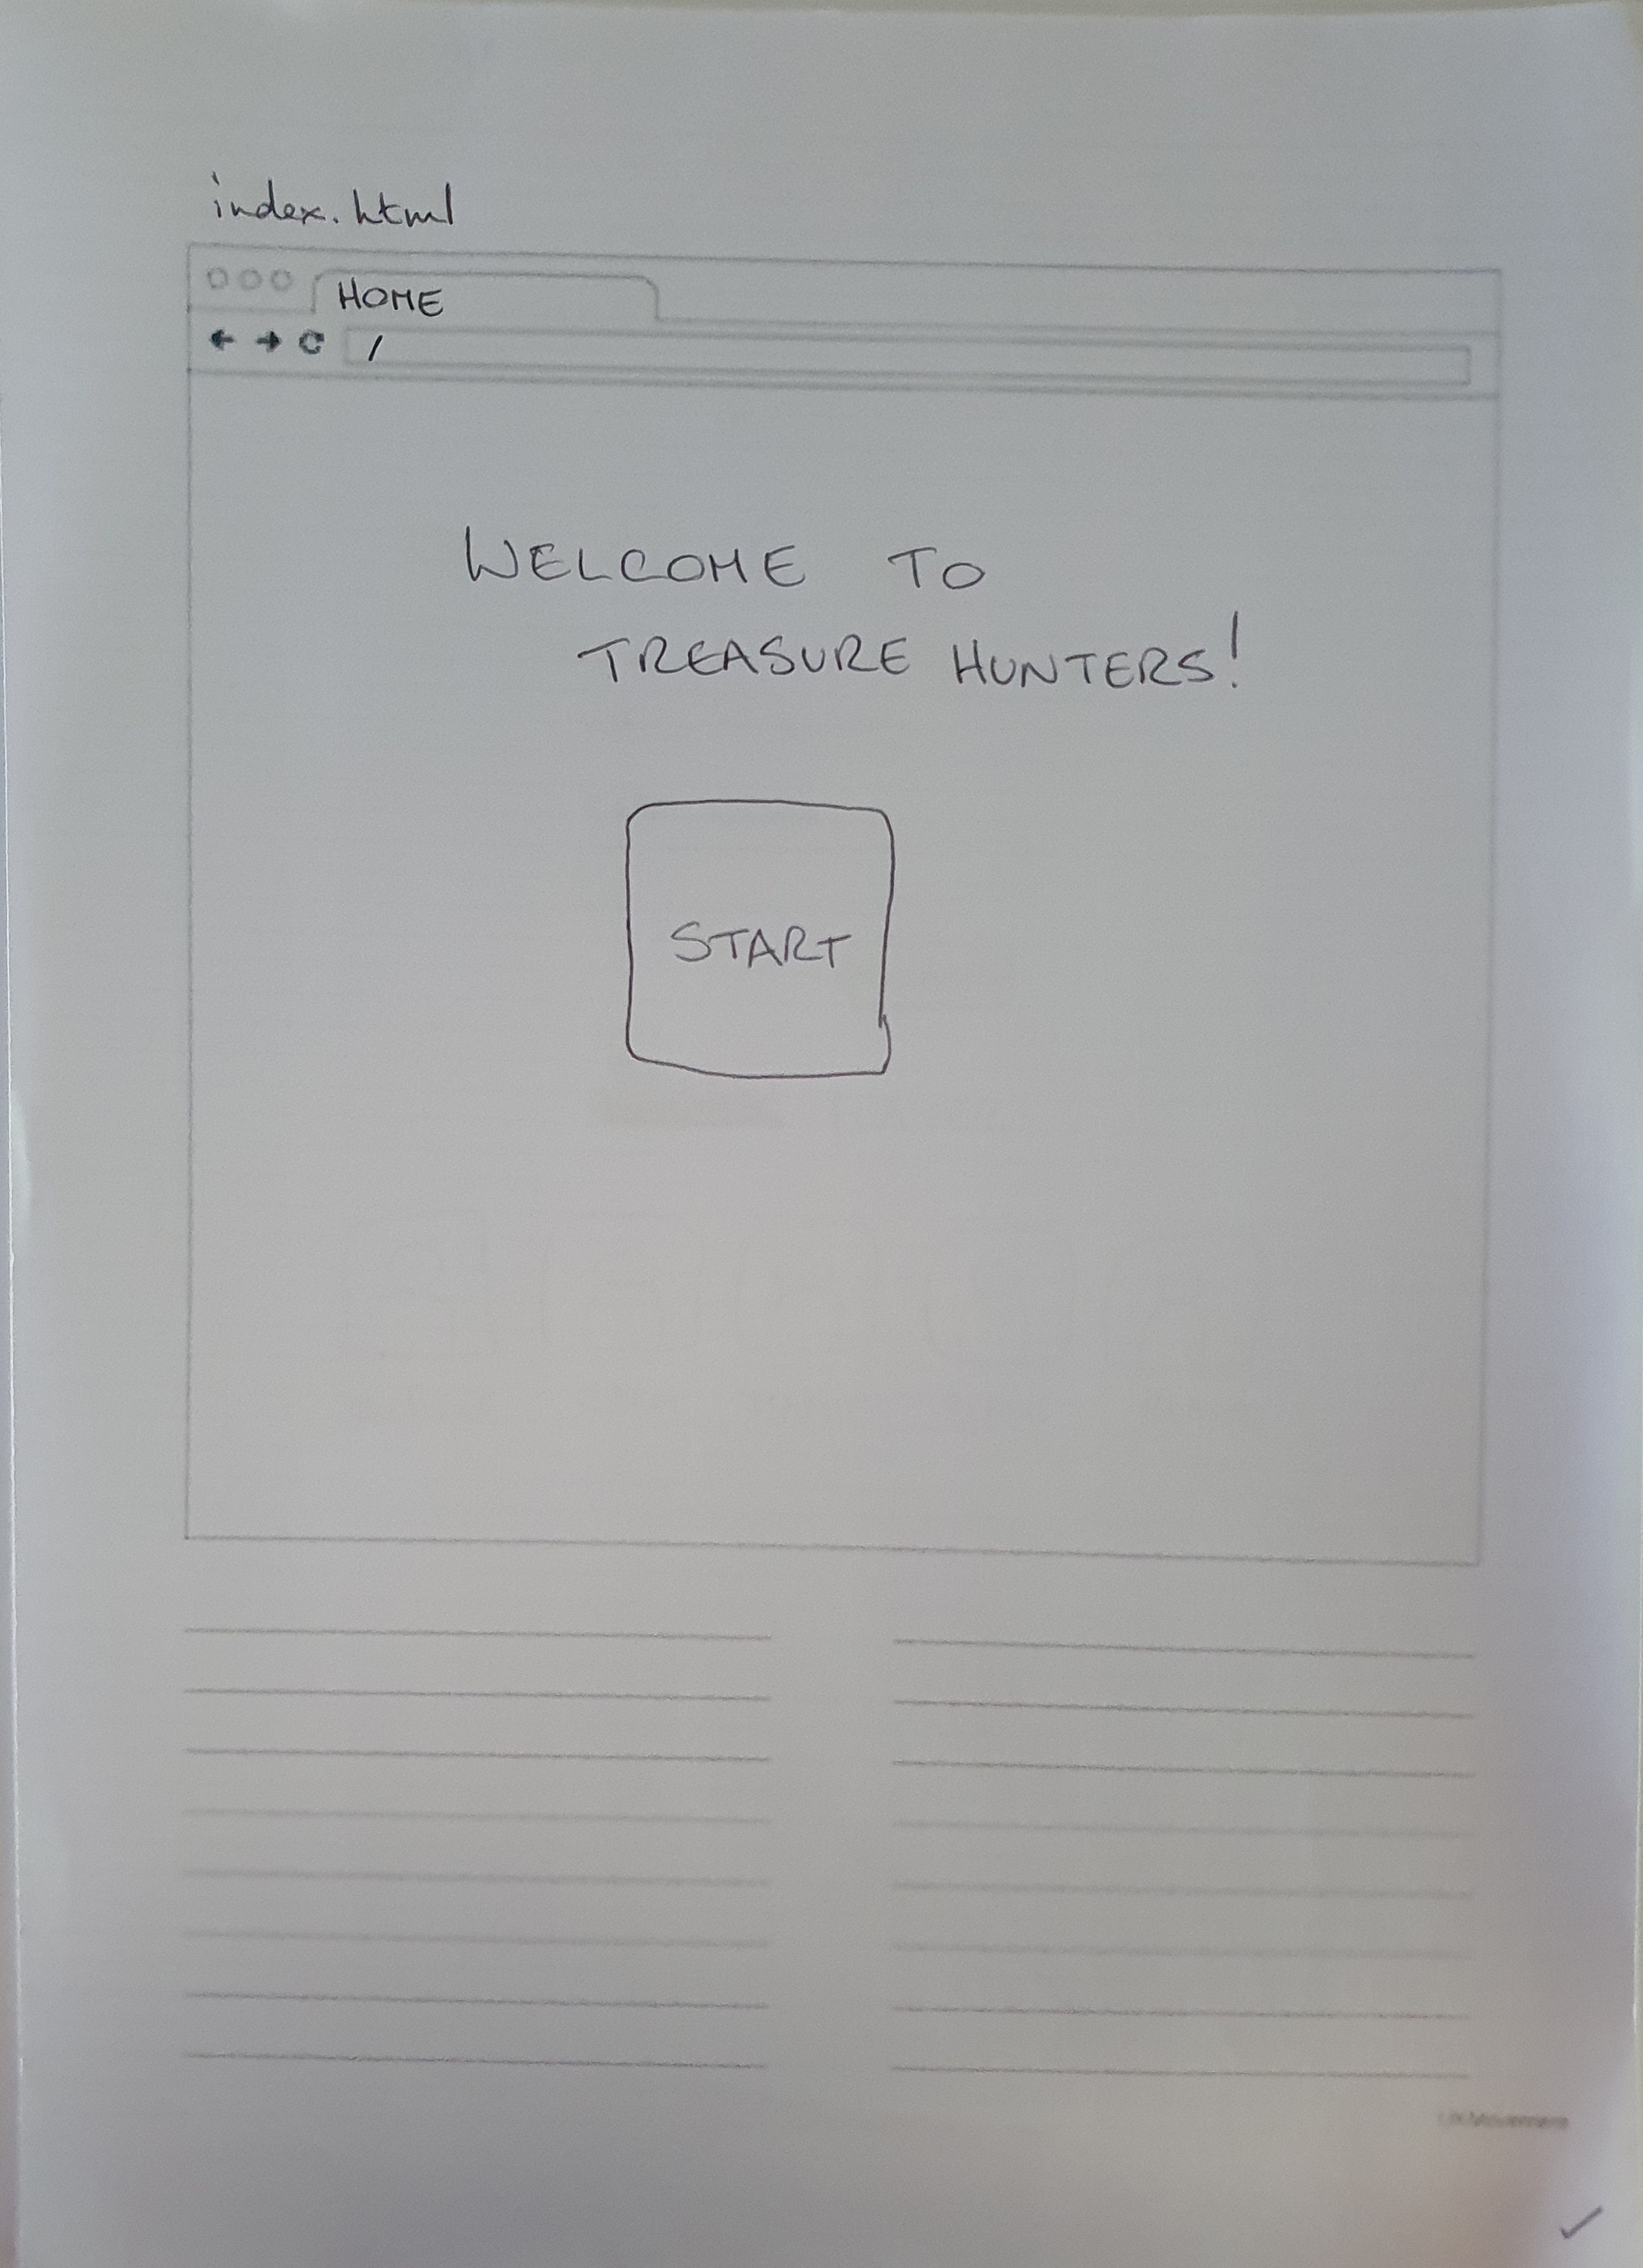 index.html
HOME
/
WELCOME TO
TREASURE HUNTERS!
START
UXMovement